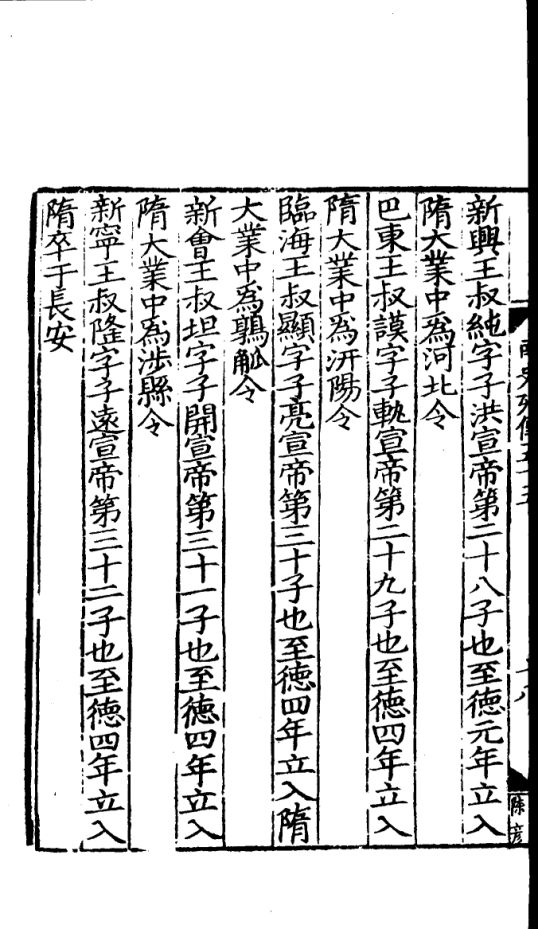 新興王叔純字子洪宣帝第二十八子也至德元年立入
隋大業中爲河北令
巴東王叔謨字子軌宣帝第二十九子也至德四年立入
隋大業中爲汧陽令
臨海王叔顯字子亮宣帝第三十子也至德四年立入隋
大業中爲鶉觚令
新會王叔坦字子開宣帝第三十一子也至德四年立入
隋大業中爲涉縣令
新寧王叔隆字子遠宣帝第三十二子也至德四年立入
隋卒于長安